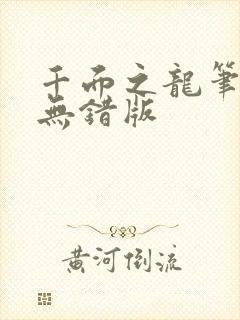 千而之龍筆
無錯版
黃河倒流